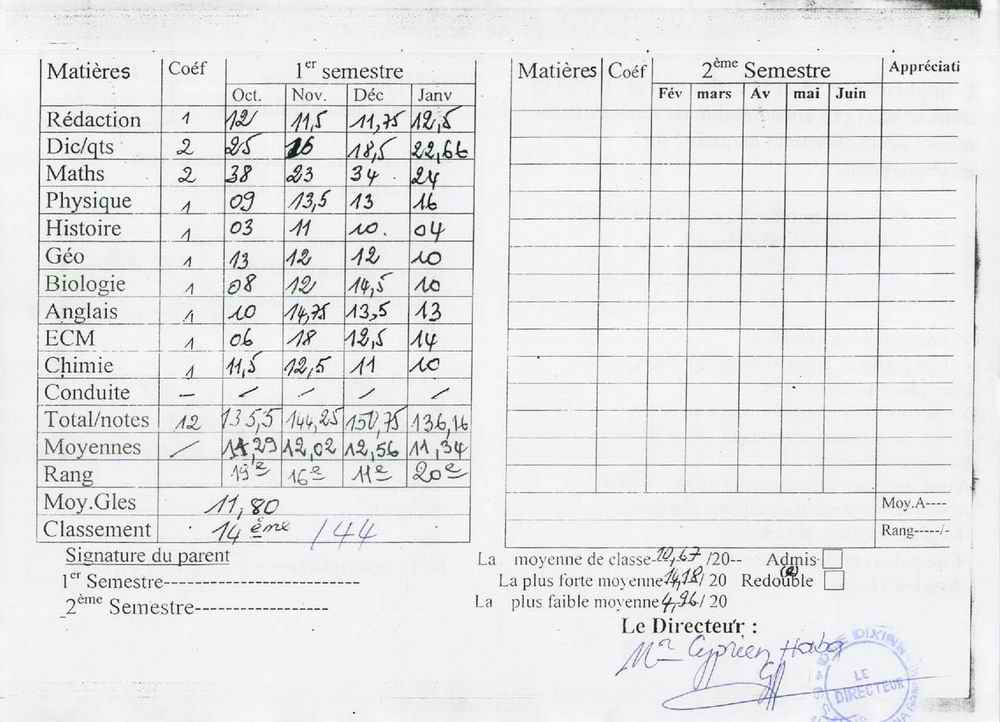 Matières Coéf 1er semestre
Oct. Nov. Déc Janv
Rédaction 1 12 11,5 11,75 12,5
Dic/qts 2 25 16 18,5 22,66
Maths 2 38 23 34 24
Physique 1 09 13,5 13 16
Histoire 1 03 11 10. 04
Géo 1 13 12 12 10
Biologie 1 08 12 14,5 10
Anglais 1 10 14,75 13,5 13
ECM 1 06 18 12,5 14
Chimie 1 11,5 12,5 11 10
Conduite - / / / /
Total/notes 12 135,5 144,25 150,75 136,16
Moyennes / 11,29 12,02 12,56 11,34
Rang 19e 16e 11e 20e
Moy.Gles 11,80
Classement 14ème /44
Signature du parent
1er Semestre------------------
2ème Semestre------------------
Matières Coéf 2ème Semestre Appréciati
Fév mars Av mai Juin
Moy.A----
Rang-----/-
La moyenne de classe-10,67/20-- Admis-
La plus forte moyenne 14,18/20 Redouble
La plus faible moyenne 4,96/20
Le Directeur :
Mr Cyprien Haba
LE
DIRECTEUR